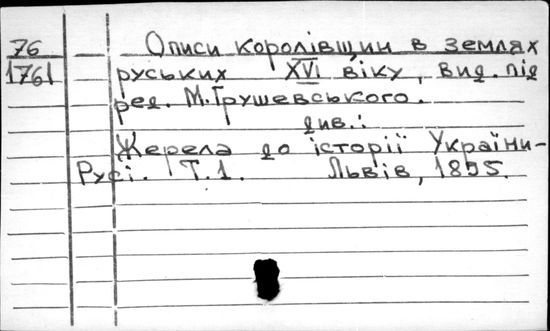 76
1761
Описи королівщин в землях
руських XVI віку, вид. під
ред. М. Грушевського.
див.:
Жерела до історії України-
Русі. Т.1. Львів, 1895.